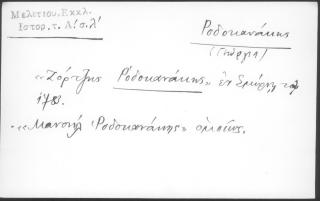 Μελετίου. Εκκλ.
Ιστορ. τ. Α΄ σ. λ΄
Ροδοκανάκης
(Γεώργι)
"Ζώρτζης Ροδοκανάκης" ἐν Σμύρνῃ τῷ
178
"Μανουήλ Ῥοδοκανάκης" ὁμοίως.